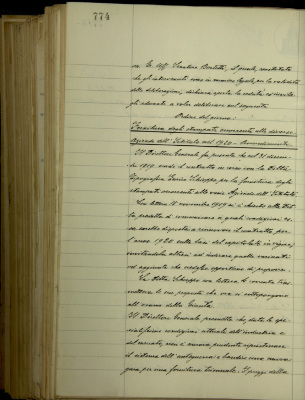 774
ra. Il Sen. Beneduce, il quale, constatato
che gli intervenuti sono in numero legale per la validità
delle deliberazioni, dichiara aperta la seduta ed invita
gli adunati a voler deliberare sul seguente
Ordine del giorno:
Fornitura degli stampati occorrenti alle diverse
Aziende dell'Istituto nel 1920 - Provvedimenti
Il Direttore Generale fa presente che col 31 dicem-
bre 1919 scade il contratto in corso con la Ditta
Tipografica Enrico Schioppo per la fornitura degli
stampati occorrenti alle varie Aziende dell'Istituto.
Con lettera 18 novembre 1919 si è chiesto alla Dit-
ta predetta di comunicare a quali condizioni es-
sa sarebbe disposta a rinnovare il contratto per
l'anno 1920 sulla base del capitolato in vigore,
invitandola altresì ad indicare quelle varianti
ed aggiunte che credesse opportuno di proporre.
La Ditta Schioppo con lettera
le sue proposte che ora si sottopongono
all'esame della Giunta.
Il Direttore Generale premette che date le spe-
cialissime condizioni attuali dell'industria e
del mercato, non è ancora prudente ripristinare
il sistema dell'antiguerra e bandire una nuova
gara per una fornitura triennale. I prezzi della